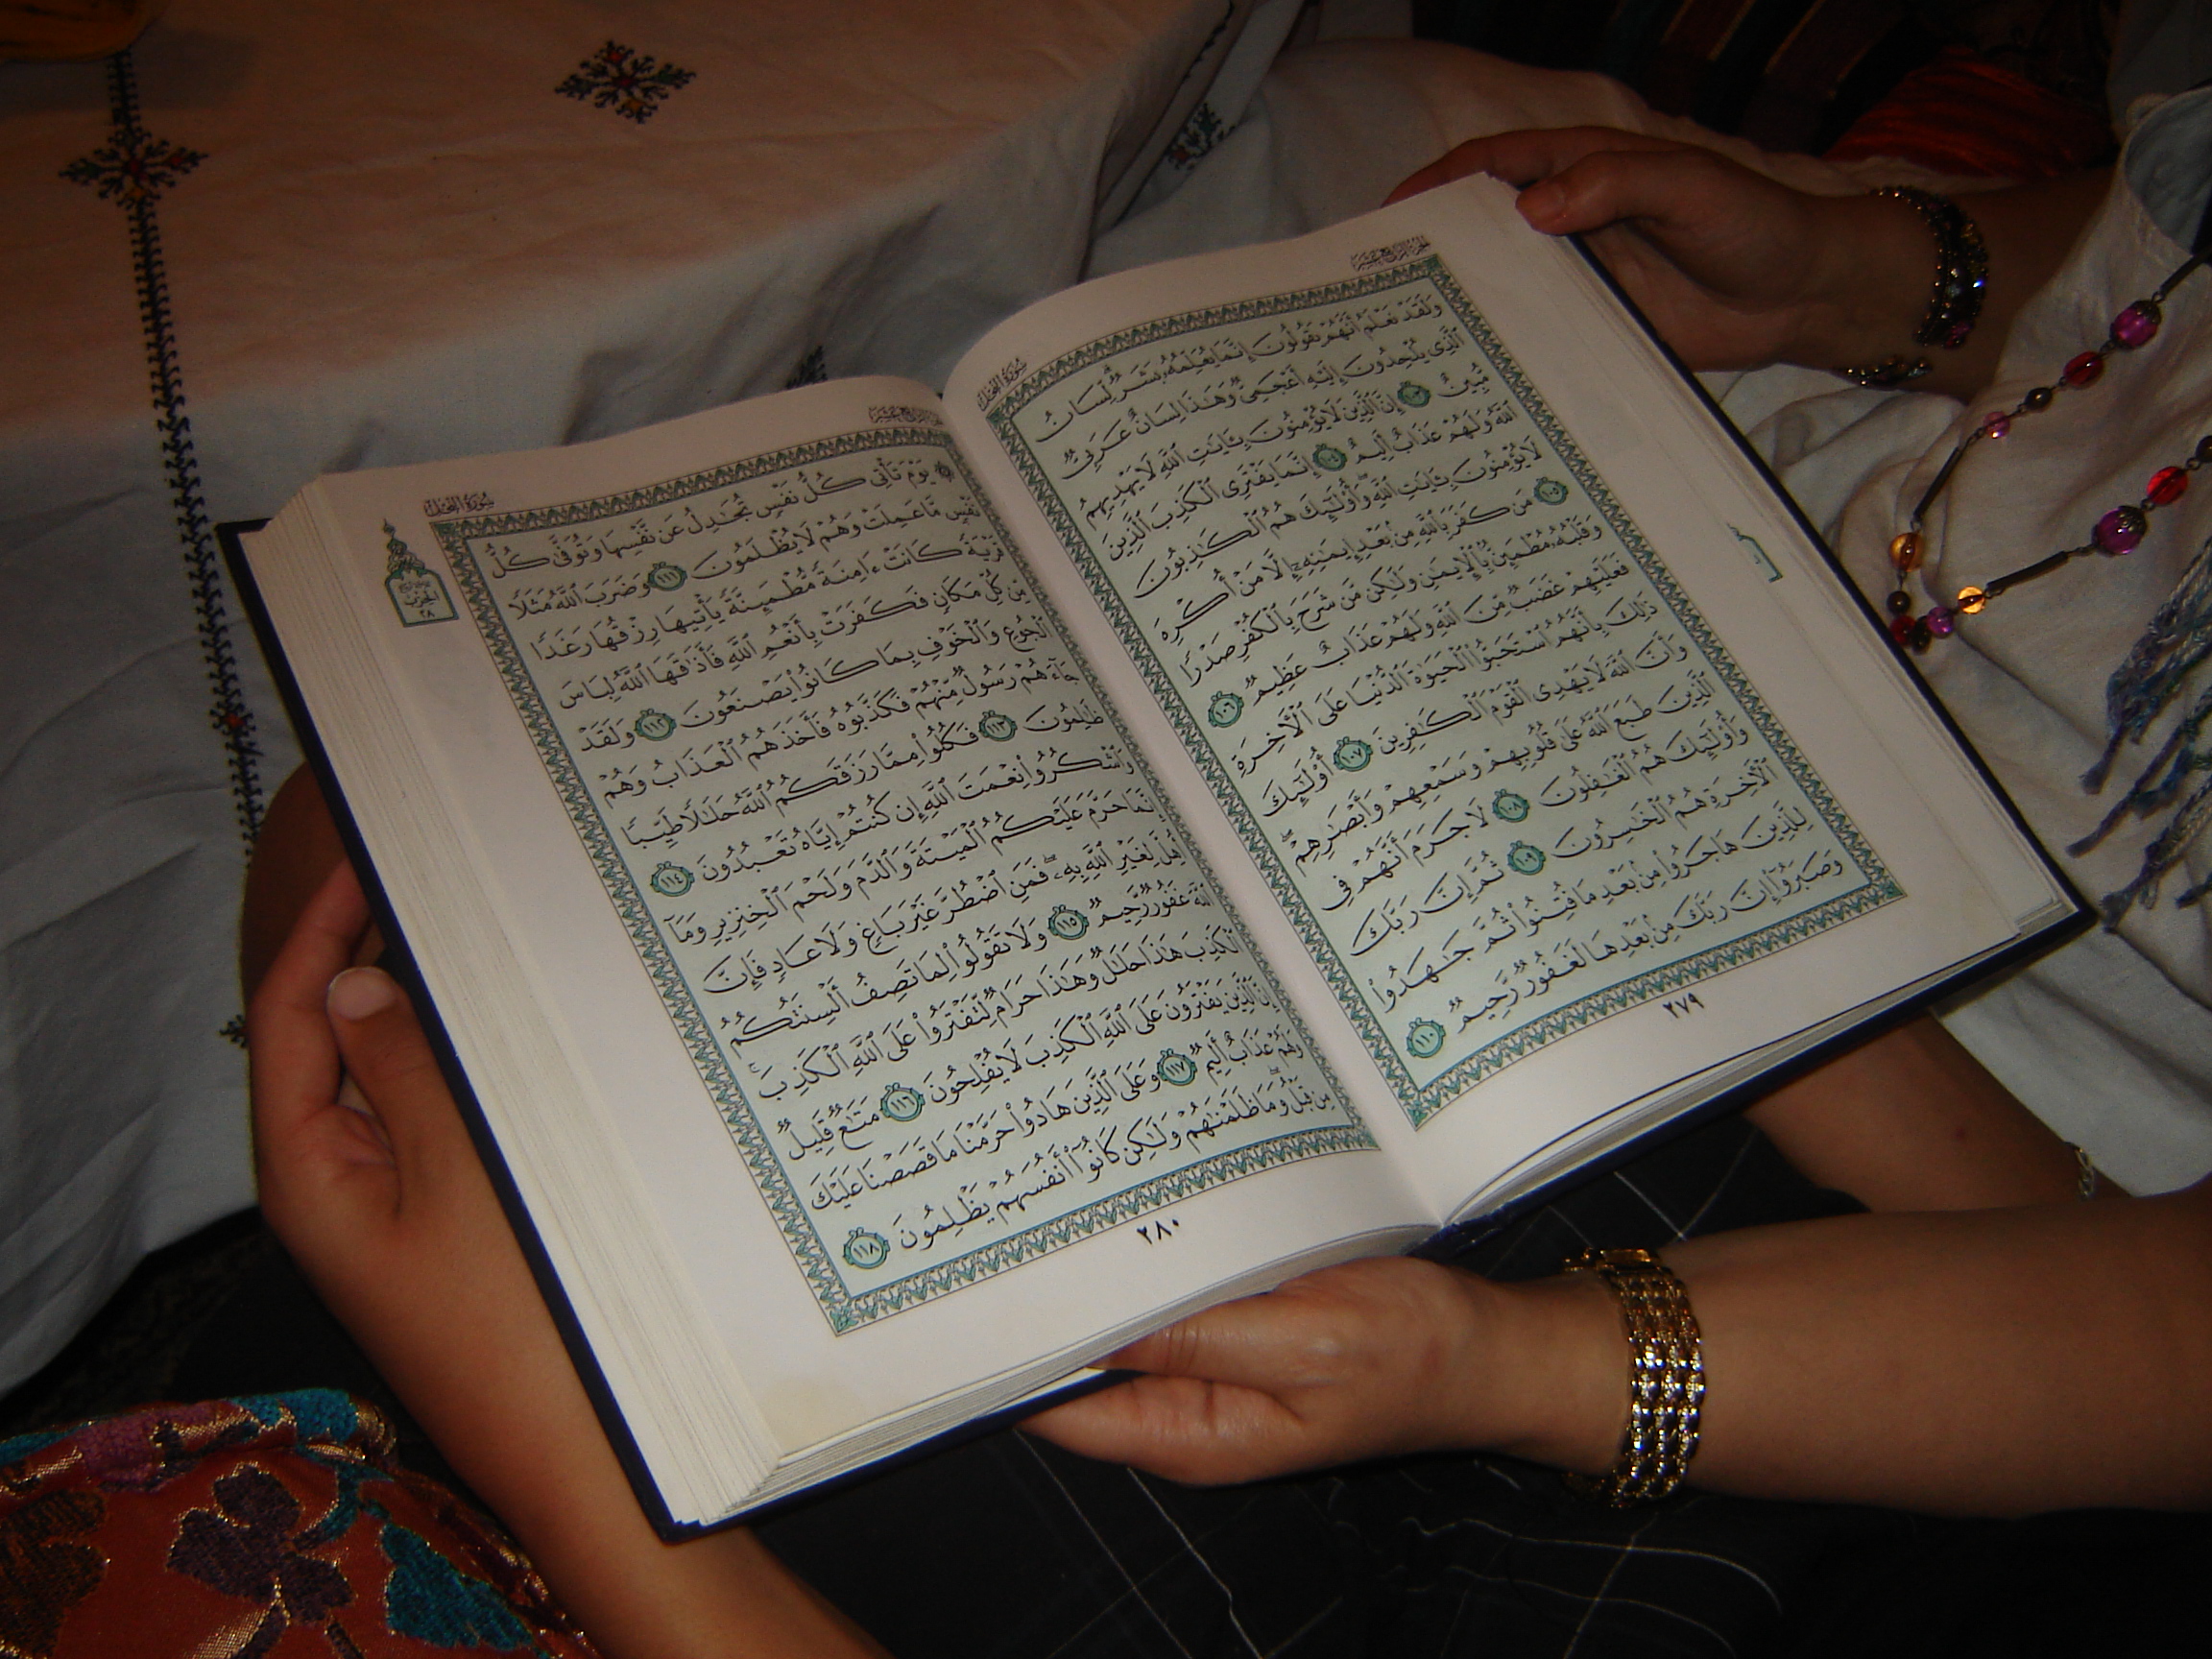 الجزء الرابع عشر
سورة النحل
وَلَقَدْ نَعْلَمُ أَنَّهُمْ يَقُولُونَ إِنَّمَا يُعَلِّمُهُۥ بَشَرٌ ۗ لِّسَانُ
ٱلَّذِى يُلْحِدُونَ إِلَيْهِ أَعْجَمِىٌّ وَهَٰذَا لِسَانٌ عَرَبِىٌّ
مُّبِينٌ ١٠٣ إِنَّ ٱلَّذِينَ لَا يُؤْمِنُونَ بِـَٔايَٰتِ ٱللَّهِ لَا يَهْدِيهِمُ
ٱللَّهُ وَلَهُمْ عَذَابٌ أَلِيمٌ ١٠٤ إِنَّمَا يَفْتَرِى ٱلْكَذِبَ ٱلَّذِينَ
لَا يُؤْمِنُونَ بِـَٔايَٰتِ ٱللَّهِ ۖ وَأُو۟لَٰٓئِكَ هُمُ ٱلْكَٰذِبُونَ
١٠٥ مَن كَفَرَ بِٱللَّهِ مِنۢ بَعْدِ إِيمَٰنِهِۦٓ إِلَّا مَنْ أُكْرِهَ
وَقَلْبُهُۥ مُطْمَئِنٌّۢ بِٱلْإِيمَٰنِ وَلَٰكِن مَّن شَرَحَ بِٱلْكُفْرِ صَدْرًا
فَعَلَيْهِمْ غَضَبٌ مِّنَ ٱللَّهِ وَلَهُمْ عَذَابٌ عَظِيمٌ ١٠٦
ذَٰلِكَ بِأَنَّهُمُ ٱسْتَحَبُّوا۟ ٱلْحَيَوٰةَ ٱلدُّنْيَا عَلَى ٱلْـَٔاخِرَةِ
وَأَنَّ ٱللَّهَ لَا يَهْدِى ٱلْقَوْمَ ٱلْكَٰفِرِينَ ١٠٧ أُو۟لَٰٓئِكَ
ٱلَّذِينَ طَبَعَ ٱللَّهُ عَلَىٰ قُلُوبِهِمْ وَسَمْعِهِمْ وَأَبْصَٰرِهِمْ ۖ
وَأُو۟لَٰٓئِكَ هُمُ ٱلْغَٰفِلُونَ ١٠٨ لَا جَرَمَ أَنَّهُمْ فِى
ٱلْـَٔاخِرَةِ هُمُ ٱلْخَٰسِرُونَ ١٠٩ ثُمَّ إِنَّ رَبَّكَ
لِلَّذِينَ هَاجَرُوا۟ مِنۢ بَعْدِ مَا فُتِنُوا۟ ثُمَّ جَٰهَدُوا۟
وَصَبَرُوٓا۟ إِنَّ رَبَّكَ مِنۢ بَعْدِهَا لَغَفُورٌ رَّحِيمٌ ١١٠
٢٧٩
الجزء الرابع عشر
سورة النحل
الحزب
٢٨
۞ يَوْمَ تَأْتِى كُلُّ نَفْسٍ تُجَٰدِلُ عَن نَّفْسِهَا وَتُوَفَّىٰ كُلُّ
نَفْسٍ مَّا عَمِلَتْ وَهُمْ لَا يُظْلَمُونَ ١١١ وَضَرَبَ ٱللَّهُ مَثَلًا
قَرْيَةً كَانَتْ ءَامِنَةً مُّطْمَئِنَّةً يَأْتِيهَا رِزْقُهَا رَغَدًا
مِّن كُلِّ مَكَانٍ فَكَفَرَتْ بِأَنْعُمِ ٱللَّهِ فَأَذَٰقَهَا ٱللَّهُ لِبَاسَ
ٱلْجُوعِ وَٱلْخَوْفِ بِمَا كَانُوا۟ يَصْنَعُونَ ١١٢ وَلَقَدْ
جَآءَهُمْ رَسُولٌ مِّنْهُمْ فَكَذَّبُوهُ فَأَخَذَهُمُ ٱلْعَذَابُ وَهُمْ
ظَٰلِمُونَ ١١٣ فَكُلُوا۟ مِمَّا رَزَقَكُمُ ٱللَّهُ حَلَٰلًا طَيِّبًا
وَٱشْكُرُوا۟ نِعْمَتَ ٱللَّهِ إِن كُنتُمْ إِيَّاهُ تَعْبُدُونَ ١١٤
إِنَّمَا حَرَّمَ عَلَيْكُمُ ٱلْمَيْتَةَ وَٱلدَّمَ وَلَحْمَ ٱلْخِنزِيرِ وَمَآ
أُهِلَّ لِغَيْرِ ٱللَّهِ بِهِۦ ۖ فَمَنِ ٱضْطُرَّ غَيْرَ بَاغٍ وَلَا عَادٍ فَإِنَّ
ٱللَّهَ غَفُورٌ رَّحِيمٌ ١١٥ وَلَا تَقُولُوا۟ لِمَا تَصِفُ أَلْسِنَتُكُمُ
ٱلْكَذِبَ هَٰذَا حَلَٰلٌ وَهَٰذَا حَرَامٌ لِّتَفْتَرُوا۟ عَلَى ٱللَّهِ ٱلْكَذِبَ ۚ
إِنَّ ٱلَّذِينَ يَفْتَرُونَ عَلَى ٱللَّهِ ٱلْكَذِبَ لَا يُفْلِحُونَ ١١٦ مَتَٰعٌ قَلِيلٌ
وَلَهُمْ عَذَابٌ أَلِيمٌ ١١٧ وَعَلَى ٱلَّذِينَ هَادُوا۟ حَرَّمْنَا مَا قَصَصْنَا عَلَيْكَ
مِن قَبْلُ ۖ وَمَا ظَلَمْنَٰهُمْ وَلَٰكِن كَانُوٓا۟ أَنفُسَهُمْ يَظْلِمُونَ ١١٨
٢٨٠